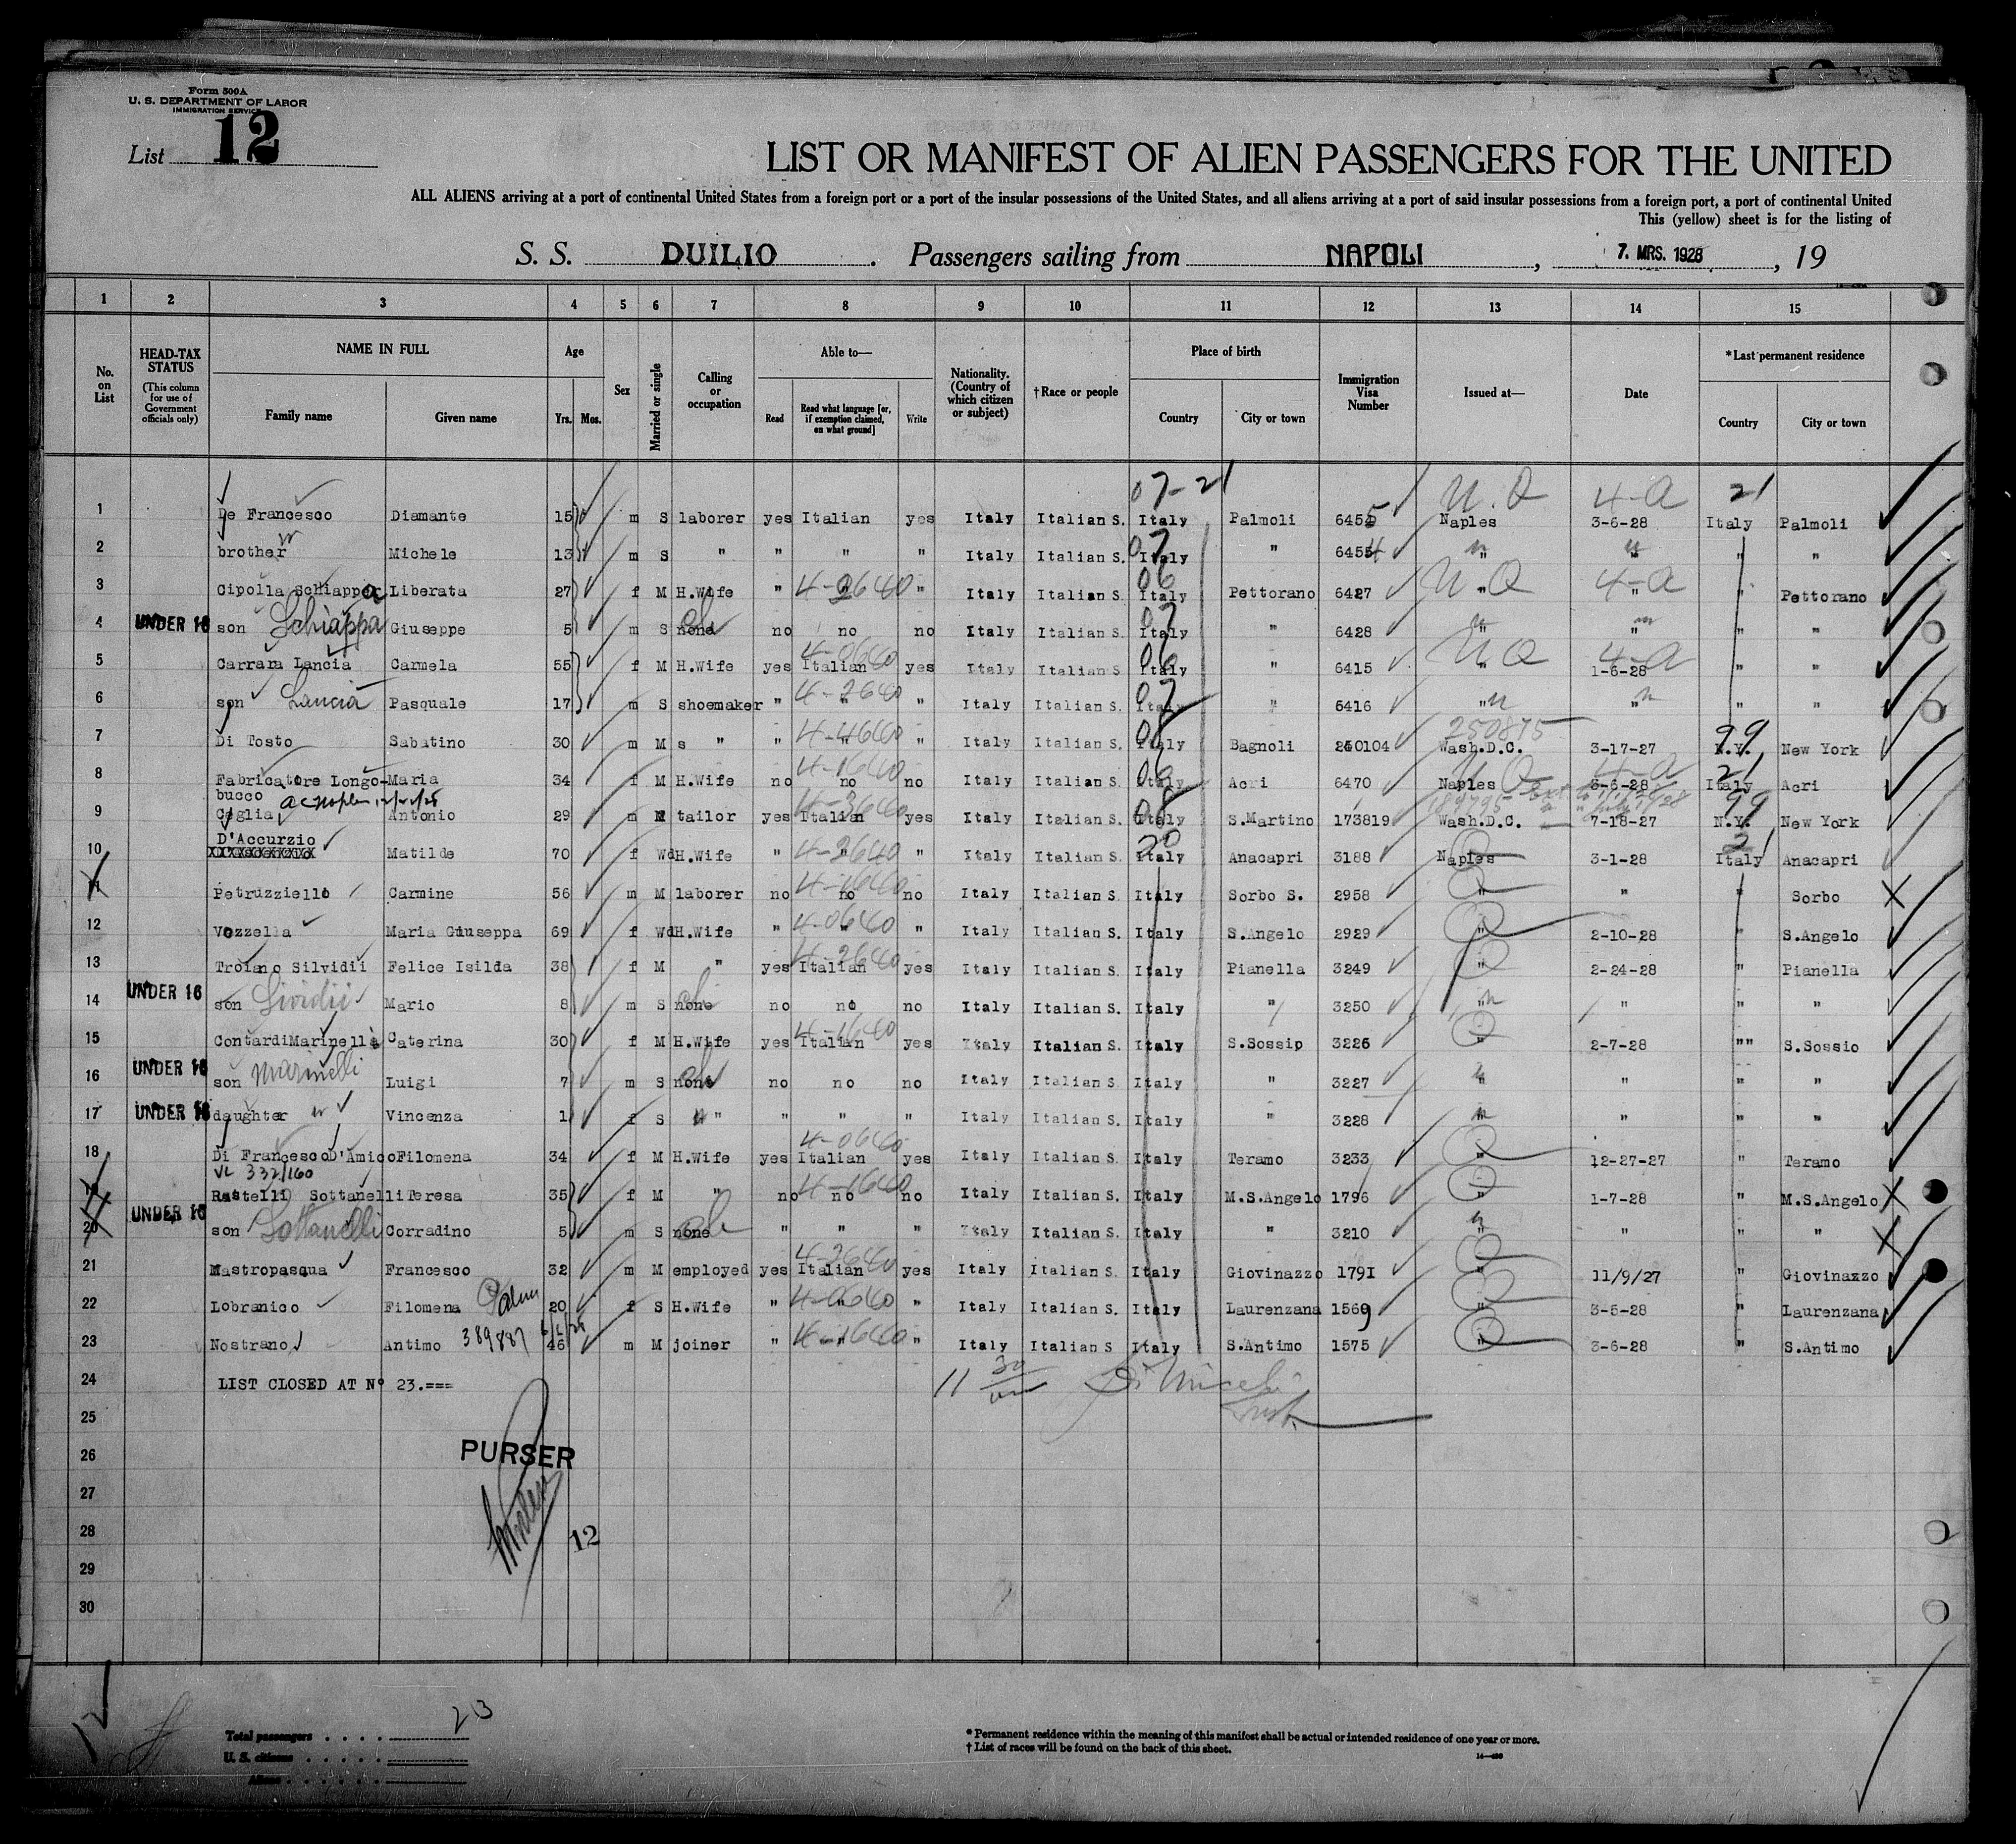 Form 500A
U. S. DEPARTMENT OF LABOR
IMMIGRATION SERVICE
List 12
LIST OR MANIFEST OF ALIEN PASSENGERS FOR THE UNITED
ALL ALIENS arriving at a port of continental United States from a foreign port or a port of the insular possessions of the United States, and all aliens arriving at a port of said insular possessions from a foreign port, a port of continental United
This (yellow) sheet is for the listing of
S. S. DUILIO. Passengers sailing from NAPOLI, 7. MRS. 1928, 19
1 2 3 4 5 6 7 8 9 10 11 12 13 14 15
No. on List
HEAD-TAX STATUS (This column for use of Government officials only)
NAME IN FULL
Family name Given name
Age
Yrs. Mos.
Sex
Married or single
Calling or occupation
Able to—
Read Read what language [or, if exemption claimed, on what ground] Write
Nationality. (Country of which citizen or subject)
† Race or people
Place of birth
Country City or town
Immigration Visa Number
Issued at—
Date
*Last permanent residence
Country City or town
07-21 N.Q 4-a 21
1 De Francesco Diamante 15 m S laborer yes Italian yes Italy Italian S. Italy Palmoli 6455 Naples 3-6-28 Italy Palmoli
2 brother " Michele 13 m S " " " " Italy Italian S. 07 Italy " 6454 " " " "
3 Cipolla Schiappa Liberata 27 f M H.Wife " 4-2640 " Italy Italian S. 06 Italy Pettorano 6427 NQ " 4-a " " Pettorano
4 UNDER 16 son Schiappa Giuseppe 5 m S none no no no Italy Italian S. 07 Italy " 6428 " " " "
5 Carrara Lancia Carmela 55 f M H.Wife yes 4-0640 Italian yes Italy Italian S 06 Italy " 6415 NQ " 4-a 1-6-28 " "
6 son Lancia Pasquale 17 m S shoemaker " 4-2640 " " Italy Italian S. 07 Italy " 6416 " " " "
7 Di Tosto Sabatino 30 m M s " " 4-4640 " " Italy Italian S. 08 Italy Bagnoli 250104 250875 Wash.D.C. 3-17-27 99 N.Y. New York
8 Fabricatore Longo-bucco Maria 34 f M H.Wife no 4-1640 no no Italy Italian S. 06 Italy Acri 6470 Naples 4-a 3-6-28 21 Italy Acri
9 Ceglia Antonio 29 m M tailor yes 4-3640 Italian yes Italy Italian S. 08 Italy S.Martino 173819 189795 Wash.D.C. 7-18-27 99 N.Y. New York
10 D'Accurzio Matilde 70 f Wd H.Wife " 4-2640 " " Italy Italian S. 20 Italy Anacapri 3188 Naples 3-1-28 21 Italy Anacapri
11 Petruzziello Carmine 56 m M laborer no 4-1640 no no Italy Italian S. Italy Sorbo S. 2958 " " " Sorbo
12 Vozzella Maria Giuseppa 69 f Wd H.Wife " 4-0640 " " Italy Italian S. Italy S.Angelo 2929 " 2-10-28 " S.Angelo
13 Troiano Silvidii Felice Isilda 38 f M " yes 4-2640 Italian yes Italy Italian S. Italy Pianella 3249 " 2-24-28 " Pianella
14 UNDER 16 son Mario 8 m S none no no no Italy Italian S. Italy " 3250 " " " "
15 Contardi Marinelli Caterina 30 f M H.Wife yes 4-1640 Italian yes Italy Italian S. Italy S.Sossip 3226 " 2-7-28 "" S.Sossio
16 UNDER 16 son Marinelli Luigi 7 m S none no no no Italy Italian S. Italy " 3227 " " " "
17 UNDER 16 daughter " Vincenza 1 f S " " " " Italy Italian S. Italy " 3228 " " " "
18 Di Francesco D'Amico Filomena 34 f M H.Wife yes 4-0640 Italian yes Italy Italian S. Italy Teramo 3233 " 12-27-27 " Teramo
VL 332/160
19 Rastelli Sottanelli Teresa 35 f M " no 4-1640 no no Italy Italian S. Italy M.S.Angelo 1796 " 1-7-28 " M.S.Angelo
20 UNDER 16 son Sottanelli Corradino 5 m S none " " " Italy Italian S. Italy " 3210 " " " "
21 Mastropasqua Francesco 32 m M employed yes 4-2640 Italian yes Italy Italian S. Italy Giovinazzo 1791 " 11/9/27 " Giovinazzo
22 Lobranico Filomena 20 f S H.Wife " 4-0640 " " Italy Italian S. Italy Laurenzana 1569 " 3-5-28 " Laurenzana
23 Nostrano Antimo 389887 46 m M joiner " 4-1640 " " Italy Italian S Italy S.Antimo 1575 " 3-6-28 " S.Antimo
24 LIST CLOSED AT Nº 23.=== 11 30
25
26 PURSER
27
28 12
29
30
Total passengers . . . . 23
U. S. citizens . . . . .
Aliens . . . . . .
* Permanent residence within the meaning of this manifest shall be actual or intended residence of one year or more.
† List of races will be found on the back of this sheet.